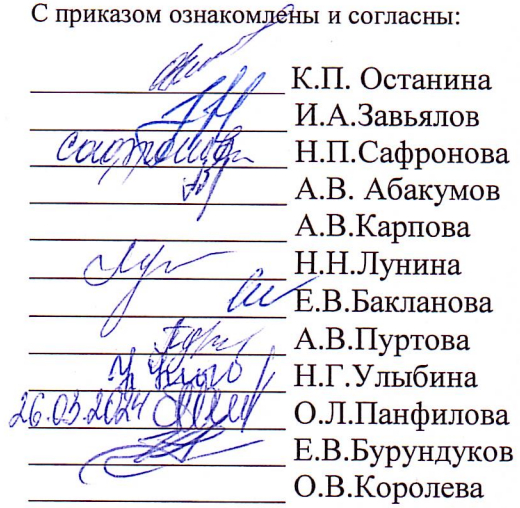 С приказом ознакомлены и согласны:
К.П. Останина
И.А.Завьялов
Сафронова Н.П.Сафронова
А.В. Абакумов
А.В.Карпова
Н.Н.Лунина
Е.В.Бакланова
А.В.Пуртова
Н.Г.Улыбина
26.03.2024 О.Л.Панфилова
Е.В.Бурундуков
О.В.Королева